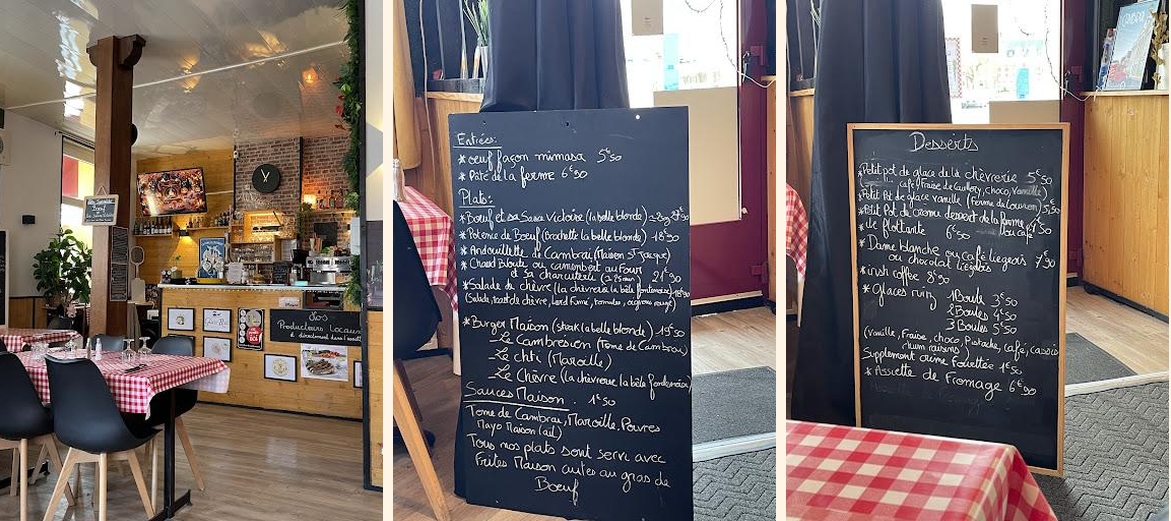 Nos
Producteurs Locaux
Entrées:
* oeuf façon mimosa 5€50
* Pâté de la ferme 6€50
Plats:
* Boeuf et sa Sauce Victoire (la belle blonde)
* Potence de Boeuf (brochette la belle blonde) 18€90
* Andouillette de Cambrai (Maison St Jacques)
* Chaud Biloute ou camembert au four
et sa charcuterie 21€90
* Salade de chèvre (la chèvrerie la bêle fontenoise)
(Salade, toast de chèvre, Lard Fumé, tomates, oignons rouge)
* Burger Maison (steak la belle blonde) 19€50
- Le Cambresion (Tome de Cambrai)
- Le chti (Maroille)
- Le Chèvre (la chèvrerie la bêle fontenoise)
Sauces Maison : 1€50
Tome de Cambrai, Maroille, Poivres
Mayo Maison (ail)
Tous nos plats sont servi avec
Frites Maison cuites au gras de
Boeuf
Desserts
* Petit pot de glace de la chèvrerie 5€50
café, Fraise de Caudry, choco, vanille)
* Petit Pot de glace vanille (Ferme de Louvion) 5€50
* Petit Pot de crème dessert de la ferme
ou café
* île flottante 6€50
* Dame blanche ou café liegeois 7€90
ou chocolat liegeois
* irish coffee 8€90
* Glaces ruiz 1 Boule 3€50
2 Boules 4€50
3 Boules 5€50
(vanille, Fraise, choco, Pistache, café, cassis
rhum raisins)
Supplement crème Fouettée 1€50
* Assiette de Fromage 6€90